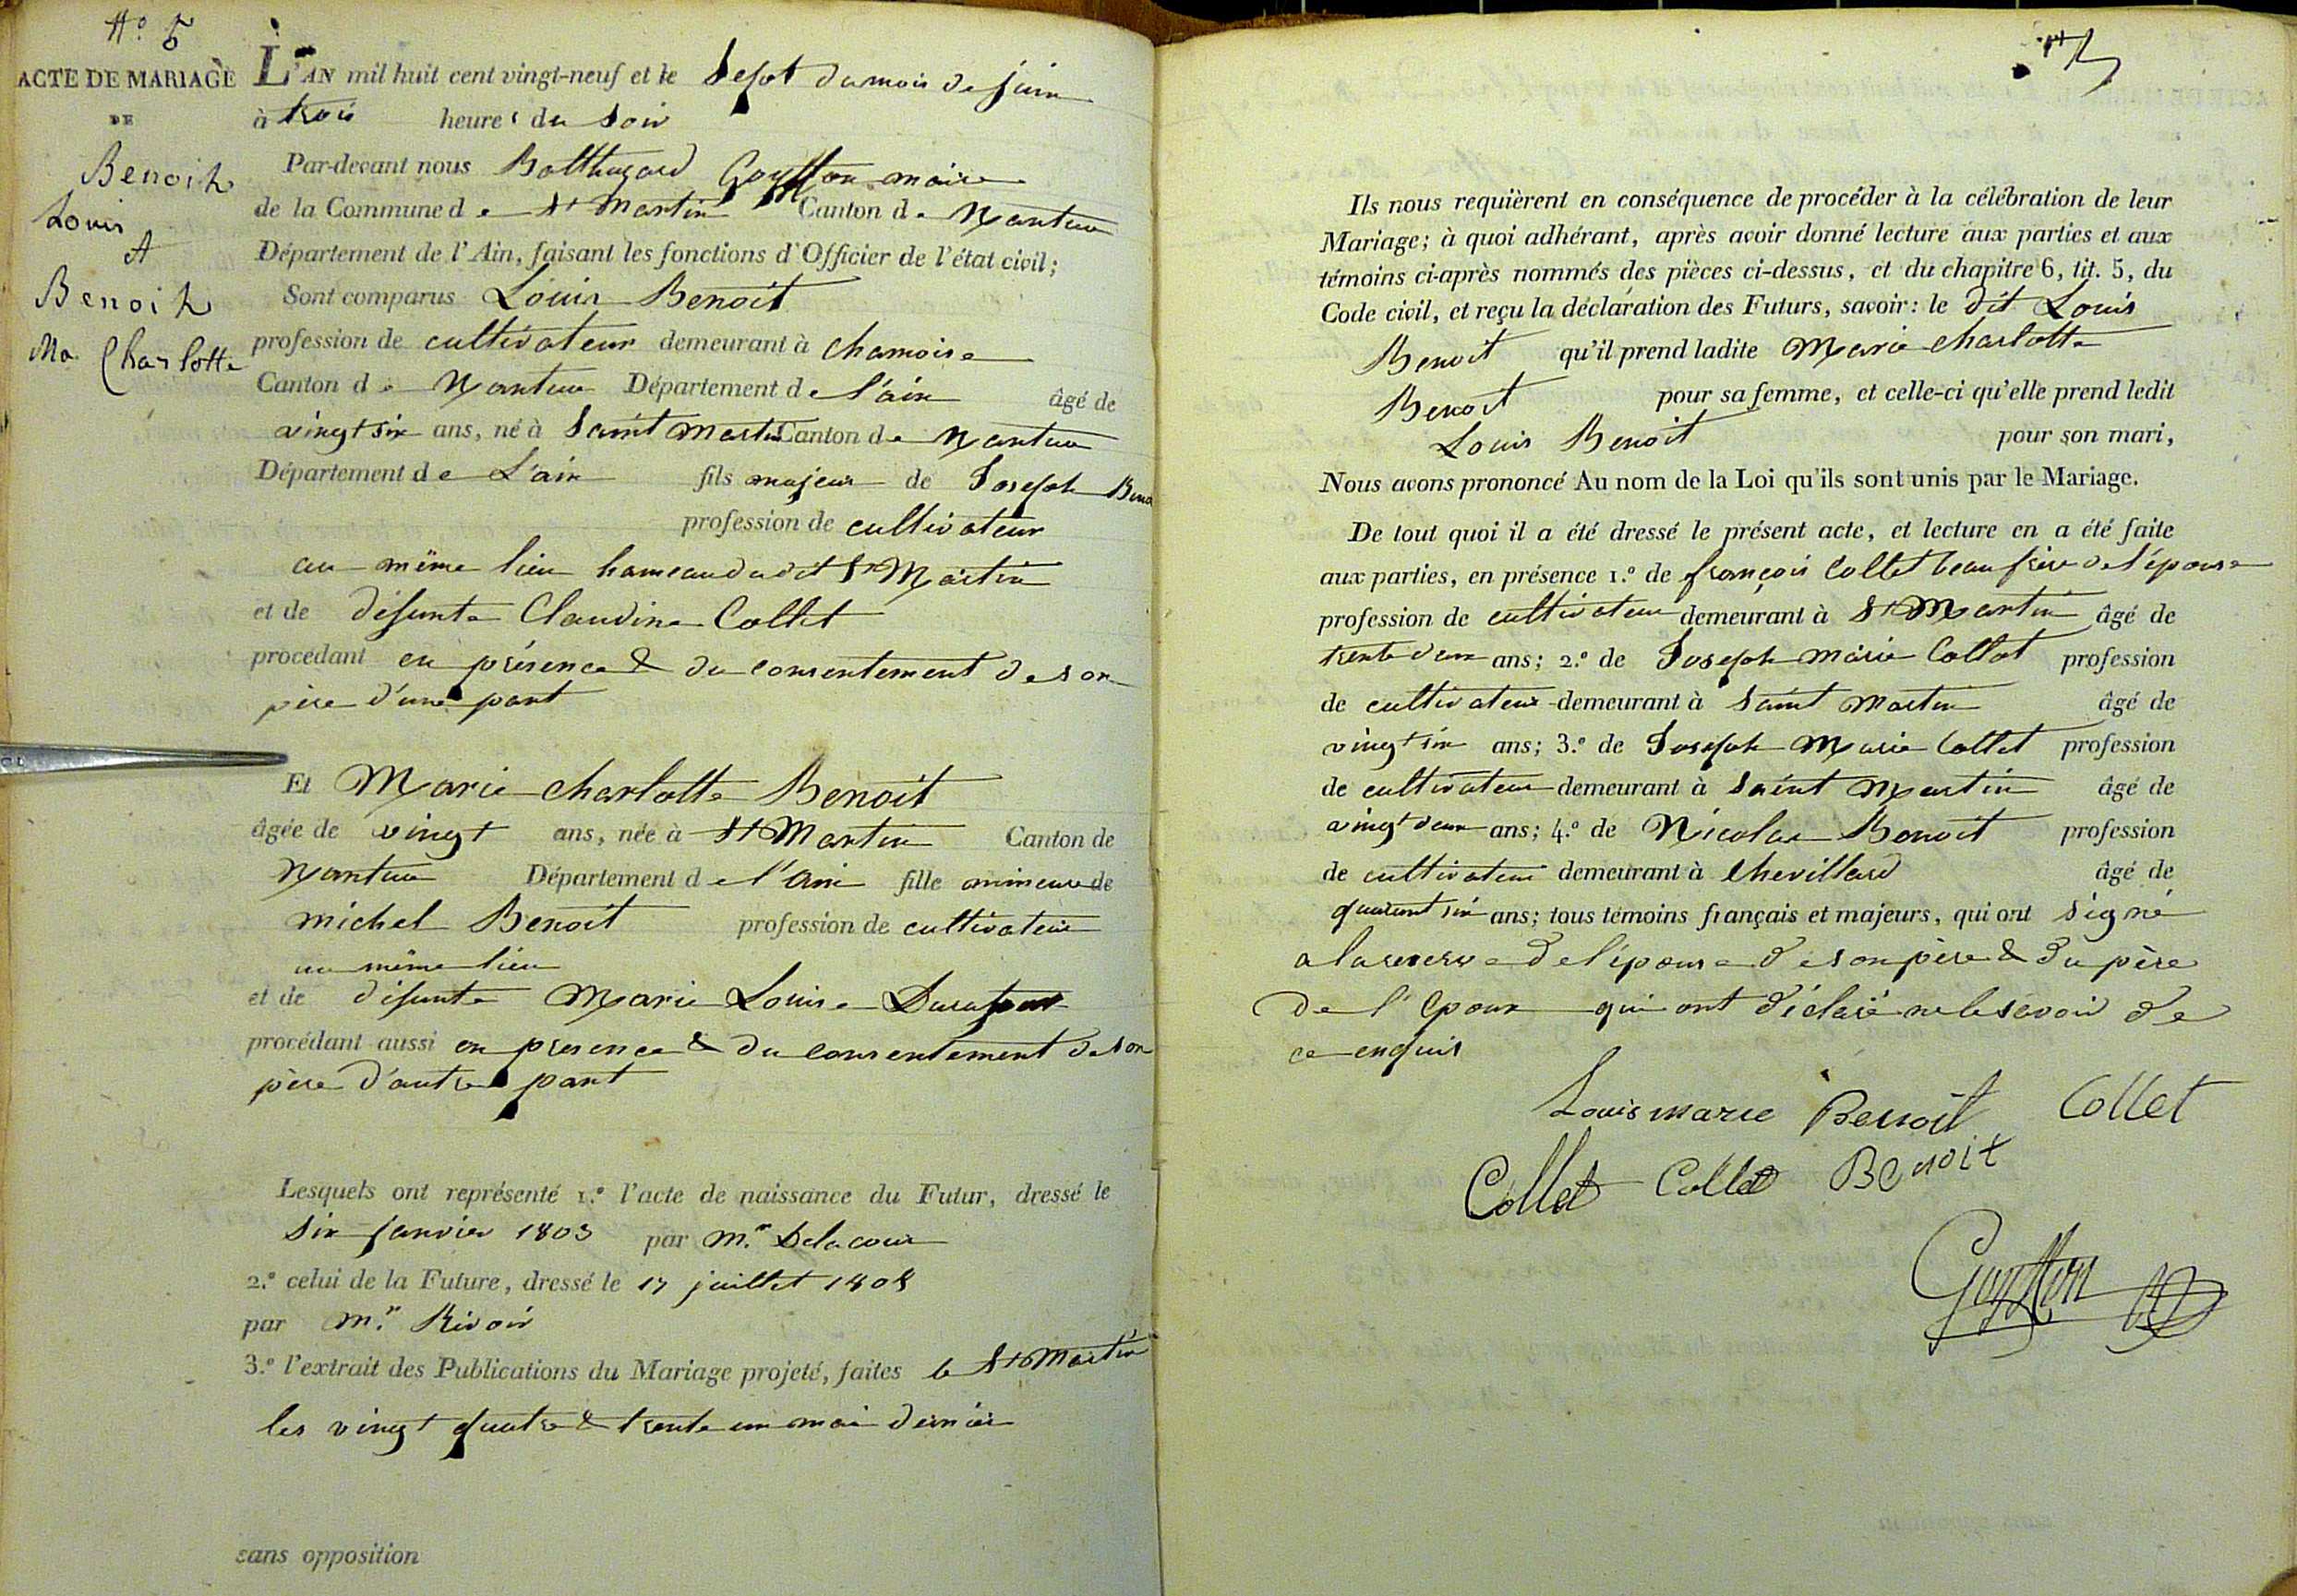 N.o 5
ACTE DE MARIAGE
DE
Benoit
Louis
et
Benoit
Ma. Charlotte
L'AN mil huit cent vingt-neuf et le Sept du mois de juin
à trois heures du soir
Par-devant nous Balthazard Gouffon maire
de la Commune de St Martin Canton de Nantua
Département de l'Ain, faisant les fonctions d'Officier de l'état civil;
Sont comparus Louis Benoit
profession de cultivateur demeurant à Chamoise
Canton de Nantua Département de l'ain âgé de
vingt six ans, né à Saint Martin Canton de Nantua
Département de L'ain fils majeur de Joseph Benoi
profession de cultivateur
au même lieu hameau dudit St Martin
et de défunte Claudine Collet
procédant en présence & du consentement de son
père d'une part
Et Marie charlotte Benoit
âgée de vingt ans, née à St Martin Canton de
Nantua Département de l'ain fille mineure de
michel Benoit profession de cultivateur
au même lieu
et de défunte Marie Louise
procédant aussi en presence & du consentement de son
père d'autre part
Lesquels ont représenté 1.o l'acte de naissance du Futur, dressé le
six janvier 1803 par M.r Delacour
2.o celui de la Future, dressé le 17 juillet 1808
par M.r Rivoir
3.o l'extrait des Publications du Mariage projeté, faites St Martin
les vingt quatre & trente un mai dernier
sans opposition
Ils nous requièrent en conséquence de procéder à la célébration de leur
Mariage; à quoi adhérant, après avoir donné lecture aux parties et aux
témoins ci-après nommés des pièces ci-dessus, et du chapitre 6, tit. 5, du
Code civil, et reçu la déclaration des Futurs, savoir: le dit Louis
Benoit qu'il prend ladite Marie charlotte
Benoit pour sa femme, et celle-ci qu'elle prend ledit
Louis Benoit pour son mari,
Nous avons prononcé Au nom de la Loi qu'ils sont unis par le Mariage.
De tout quoi il a été dressé le présent acte, et lecture en a été faite
aux parties, en présence 1.o de françois Collet beau frère de l'épouse
profession de cultivateur demeurant à St Martin âgé de
trente deux ans; 2.o de Joseph marie Collet profession
de cultivateur demeurant à Saint Martin âgé de
vingt six ans; 3.o de Joseph Marie Collet profession
de cultivateur demeurant à Saint Martin âgé de
vingt deux ans; 4.o de Nicolas Benoit profession
de cultivateur demeurant à Chevillard âgé de
quarant six ans; tous témoins français et majeurs, qui ont signé
a la reserve de l'épouse de son père & du père
de l'epoux qui ont déclaré ne le savoir de
ce enquis
Louis marie Benoit Collet
Collet Collet Benoit
Gouffon